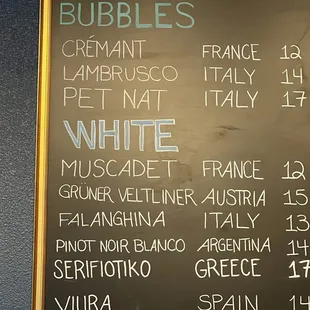 BUBBLES
CRÉMANT FRANCE 12
LAMBRUSCO ITALY 14
PET NAT ITALY 17
WHITE
MUSCADET FRANCE 12
GRÜNER VELTLINER AUSTRIA 15
FALANGHINA ITALY 13
PINOT NOIR BLANCO ARGENTINA 14
SERIFIOTIKO GREECE 17
VIURA SPAIN 14